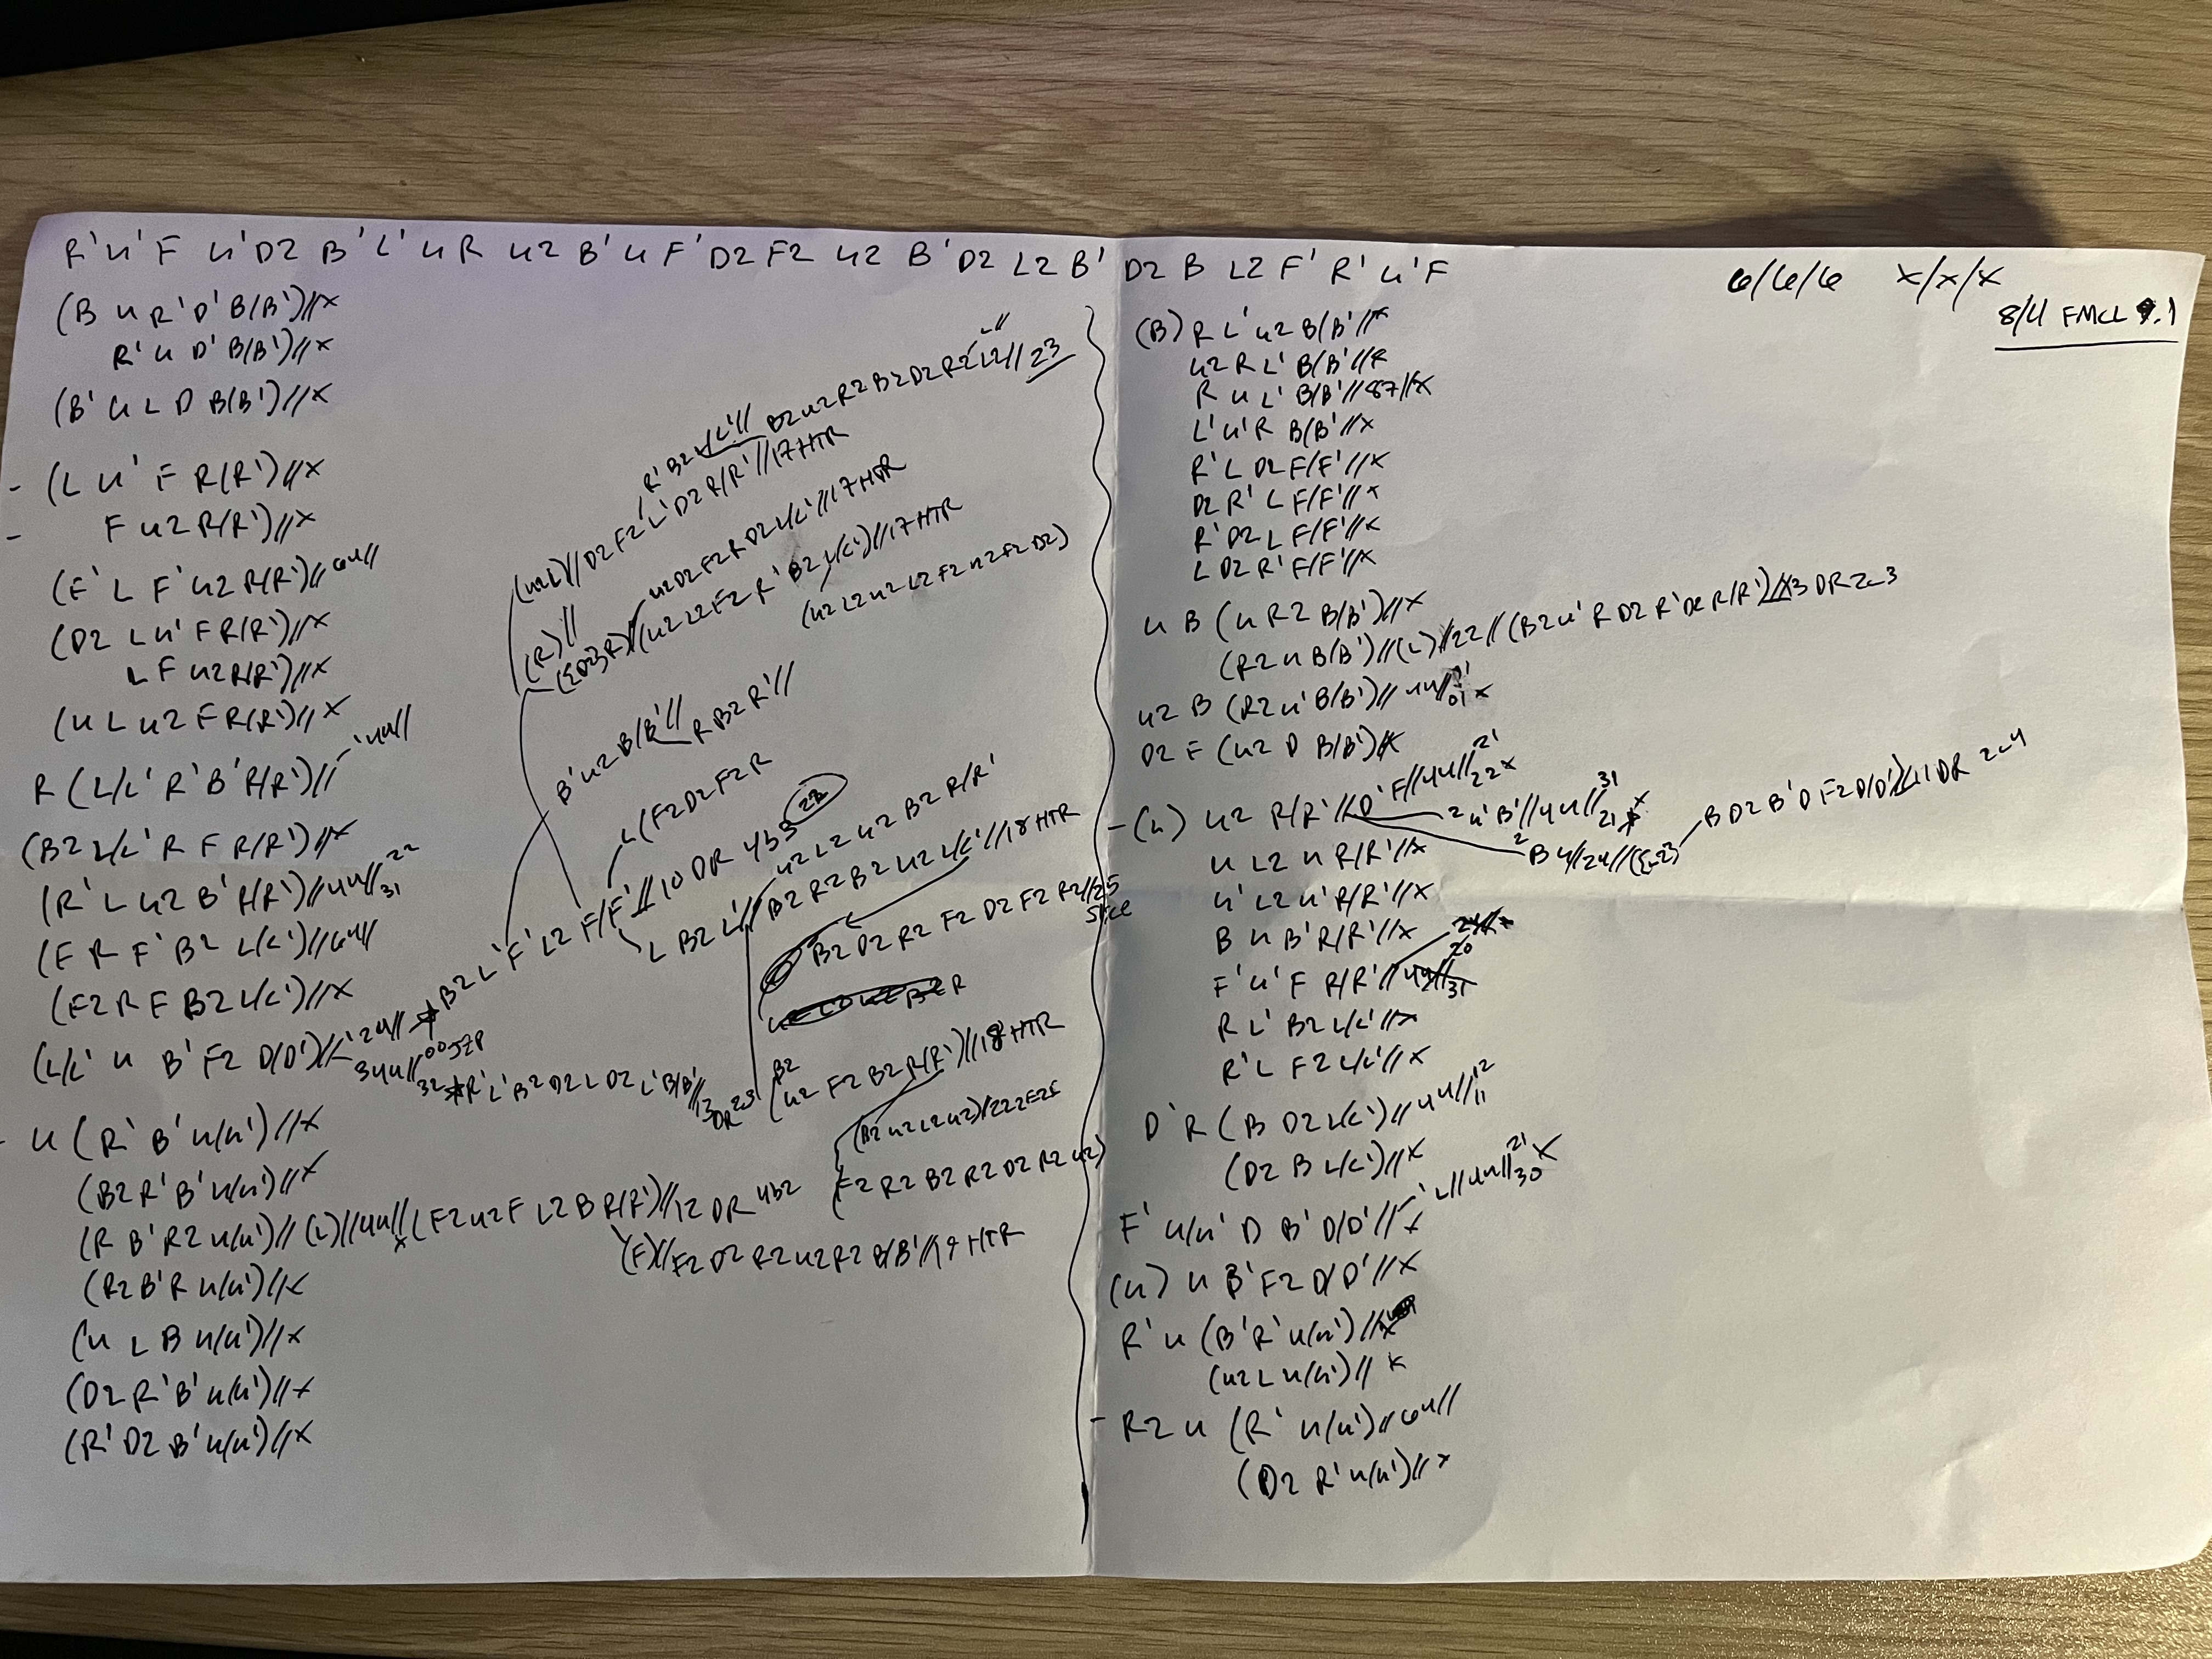 R' U' F U' D2 B' L' U R U2 B' U F' D2 F2 U2 B' D2 L2 B' D2 B L2 F' R' U' F
6/6/6 x/x/x
8/4 FMCL 9.1
(B U R' D' B(B')//x
R' U D' B(B')//x
(B' U L D B(B')//x
- (L U' F R(R')//x
- F U2 R(R')//x
(F' L F' U2 R(R')//6U//
(D2 L U' F R(R')//x
L F U2 R(R')//x
(U L U2 F R(R')//x
R (L/L' R' B' R(R')//' 4U//
(B2 L/L' R F R(R')//x
(R' L U2 B' R(R')//4U// 22 31
(F R F' B2 L(L')//6U//
(F2 R F B2 L(L')//x
(L/L' U B' F2 D(D')//L' 2U// B2 L' F' L2 F/F'// 10 DR 4b3 22
3U4// 00 32 R' L' B2 D2 L D2 L' B/B'// 13 DR
- U (R' B' U(U')//x
(B2 R' B' U(U')//x
(R B' R2 U(U')//(L)//4U//x (F2 U2 F L2 B R(R')//12 DR 4b2
(F)//F2 D2 R2 U2 R2 B/B'//19 HTR
(R2 B' R U(U')//x
(U L B U(U')//x
(D2 R' B' U(U')//x
(R' D2 B' U(U')//x
R' B2 L/L'// B2 U2 R2 B2 D2 R2 L2//23
(U2 L)//D2 F2 L' D2 R/R'//17 HTR
(R)//
U2 D2 F2 R D2 L/L'//17 HTR
(U2 L2 F2 R' B2 L(L')//17 HTR
(U2 L2 U2 L2 F2 U2 F2 D2)
B' U2 B/B'// R B2 R'//
L (F2 D2 F2 R
U2 L2 U2 B2 R/R'
L B2 L'// B2 R2 B2 U2 L/L'//18 HTR
B2 D2 R2 F2 D2 F2 R2//25
slice
B2
(U2 F2 B2 R(R')//18 HTR
(B2 U2 L2 U2)
(F2 R2 B2 R2 D2 R2 U2)
(B) R L' U2 B/B'//x
U2 R L' B/B'//x
R U L' B/B'//x
L' U' R B/B'//x
R' L D2 F/F'//x
D2 R' L F/F'//x
R' D2 L F/F'//x
L D2 R' F/F'//x
U B (U R2 B(B')//x
(R2 U B(B')//(L)//22//(B2 U' R D2 R' D2 R(R')//13 DR 2-3
U2 B (R2 U' B(B')//4U// 01 x
D2 F (U2 D B(B')//x
- (U) U2 R/R'//D' F//4U// 21 22 x
2 U' B'//4U// 31 21 x
B D2 B' D F2 D(D')//11 DR 2-4
U L2 U R/R'//x
U' L2 U' R/R'//x
B U B' R/R'//x
F' U' F R/R'//4U// 20 31
R L' B2 L/L'//x
R' L F2 L/L'//x
D' R (B D2 L(L')//4U// 12 11
(D2 B L(L')//x
F' U/U' D B' D/D'//' L//4U// 21 30 x
(U) U B' F2 D/D'//x
R' U (B' R' U(U')//x
(U2 L U(U')//x
- R2 U (R' U(U')//6U//
(D2 R' U(U')//x